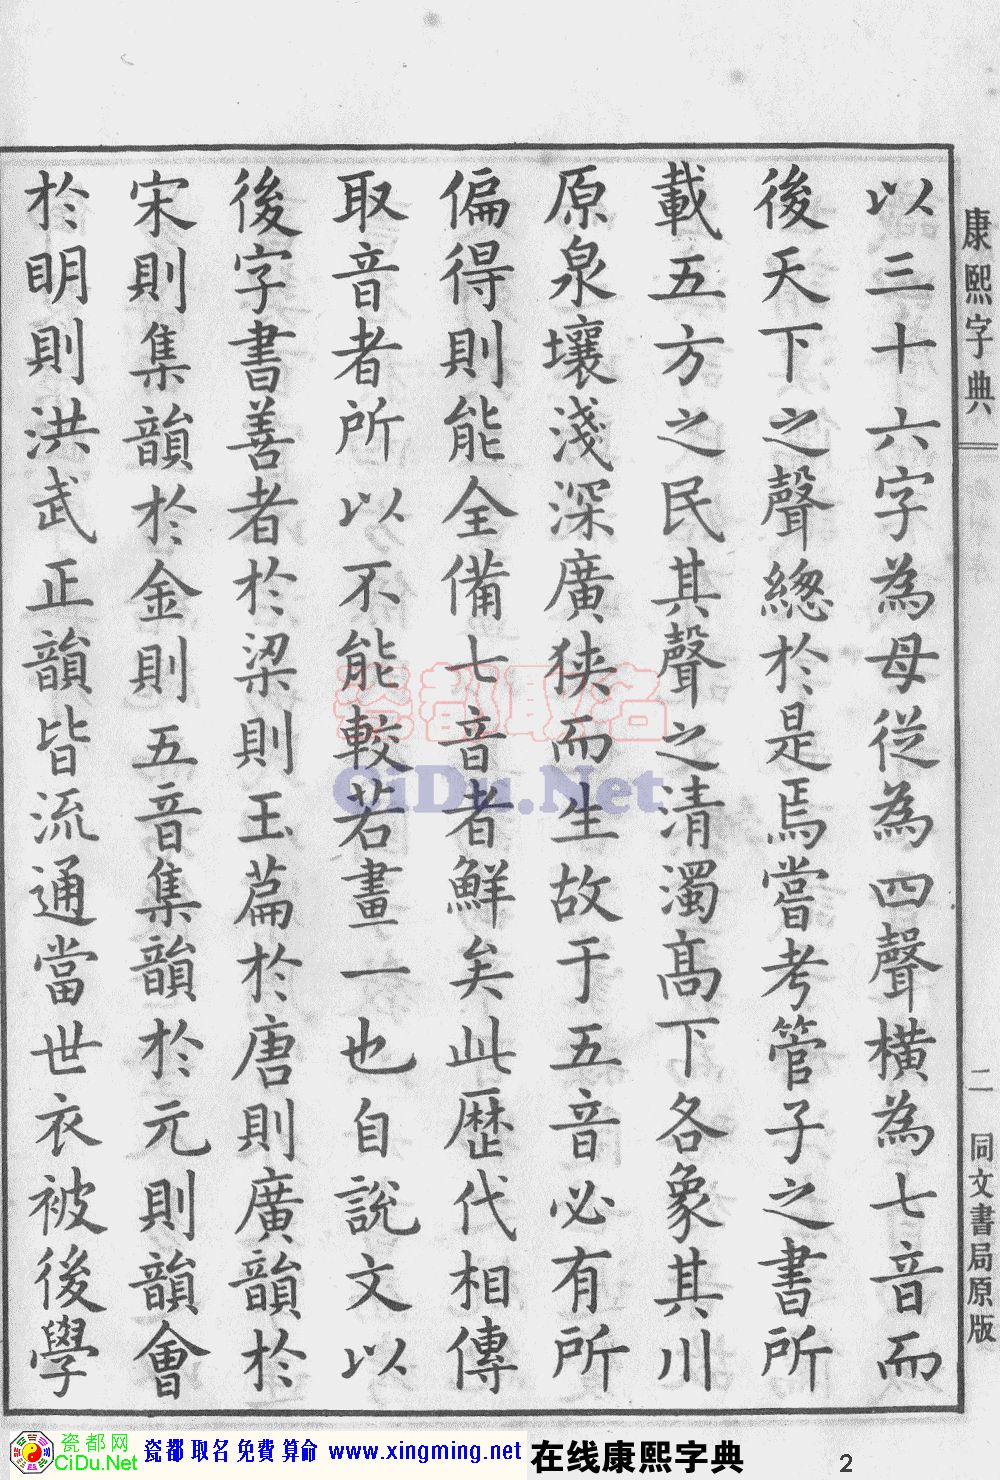 以三十六字為母從為四聲橫為七音而
後天下之聲總於是焉嘗考管子之書所
載五方之民其聲之清濁高下各象其川
原泉壤淺深廣狹而生故于五音必有所
偏得則能全備七音者鮮矣此歷代相傳
取音者所以不能較若畫一也自說文以
後字書善者於梁則玉篇於唐則廣韻於
宋則集韻於金則五音集韻於元則韻會
於明則洪武正韻皆流通當世衣被後學
康熙字典
二
同文書局原版
瓷都取名
CiDu.Net
瓷都网
CiDu.Net
瓷都取名免費算命 www.xingming.net
在线康熙字典
2